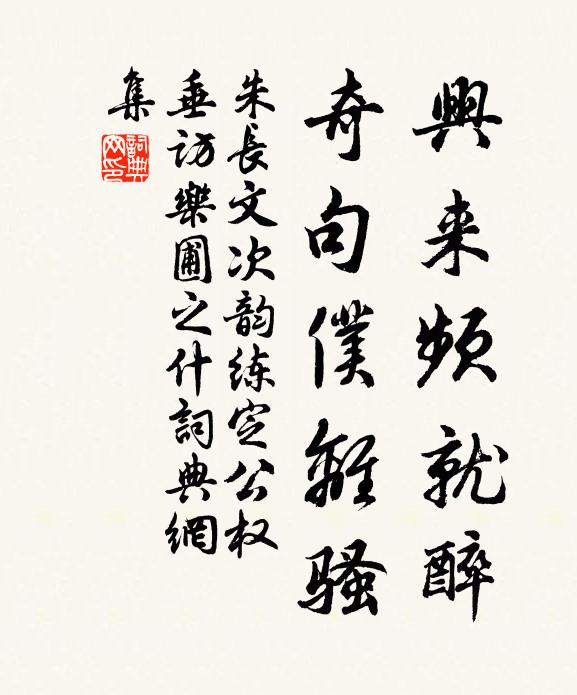 興来頻就醉
奇句僕離騷
朱長文次韵练定公权
垂访樂圃之什詞典網
集
詞典网印